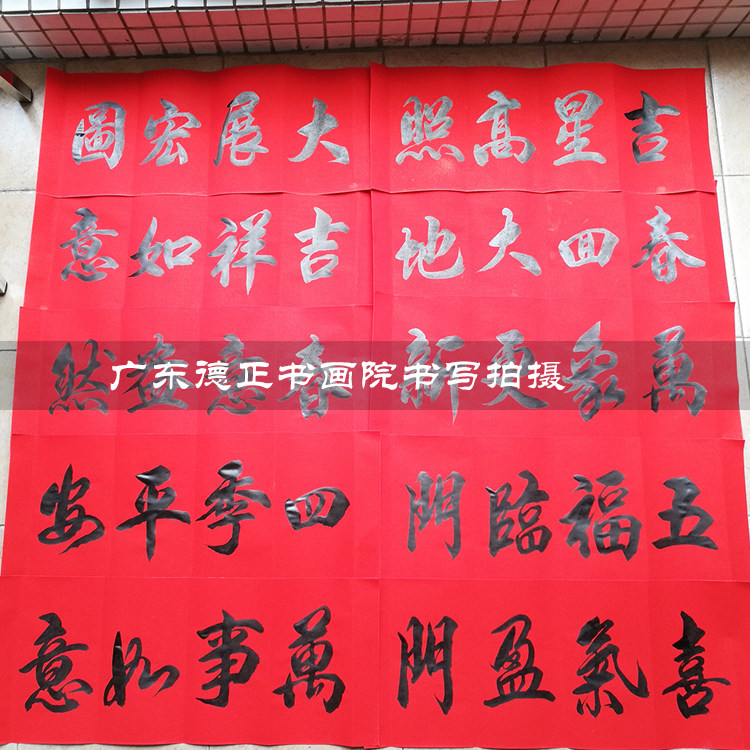 吉星高照
大展宏圖
春回大地
吉祥如意
萬象更新
春意盎然
广东德正书画院书写拍摄
五福臨門
四季平安
喜氣盈門
萬事如意